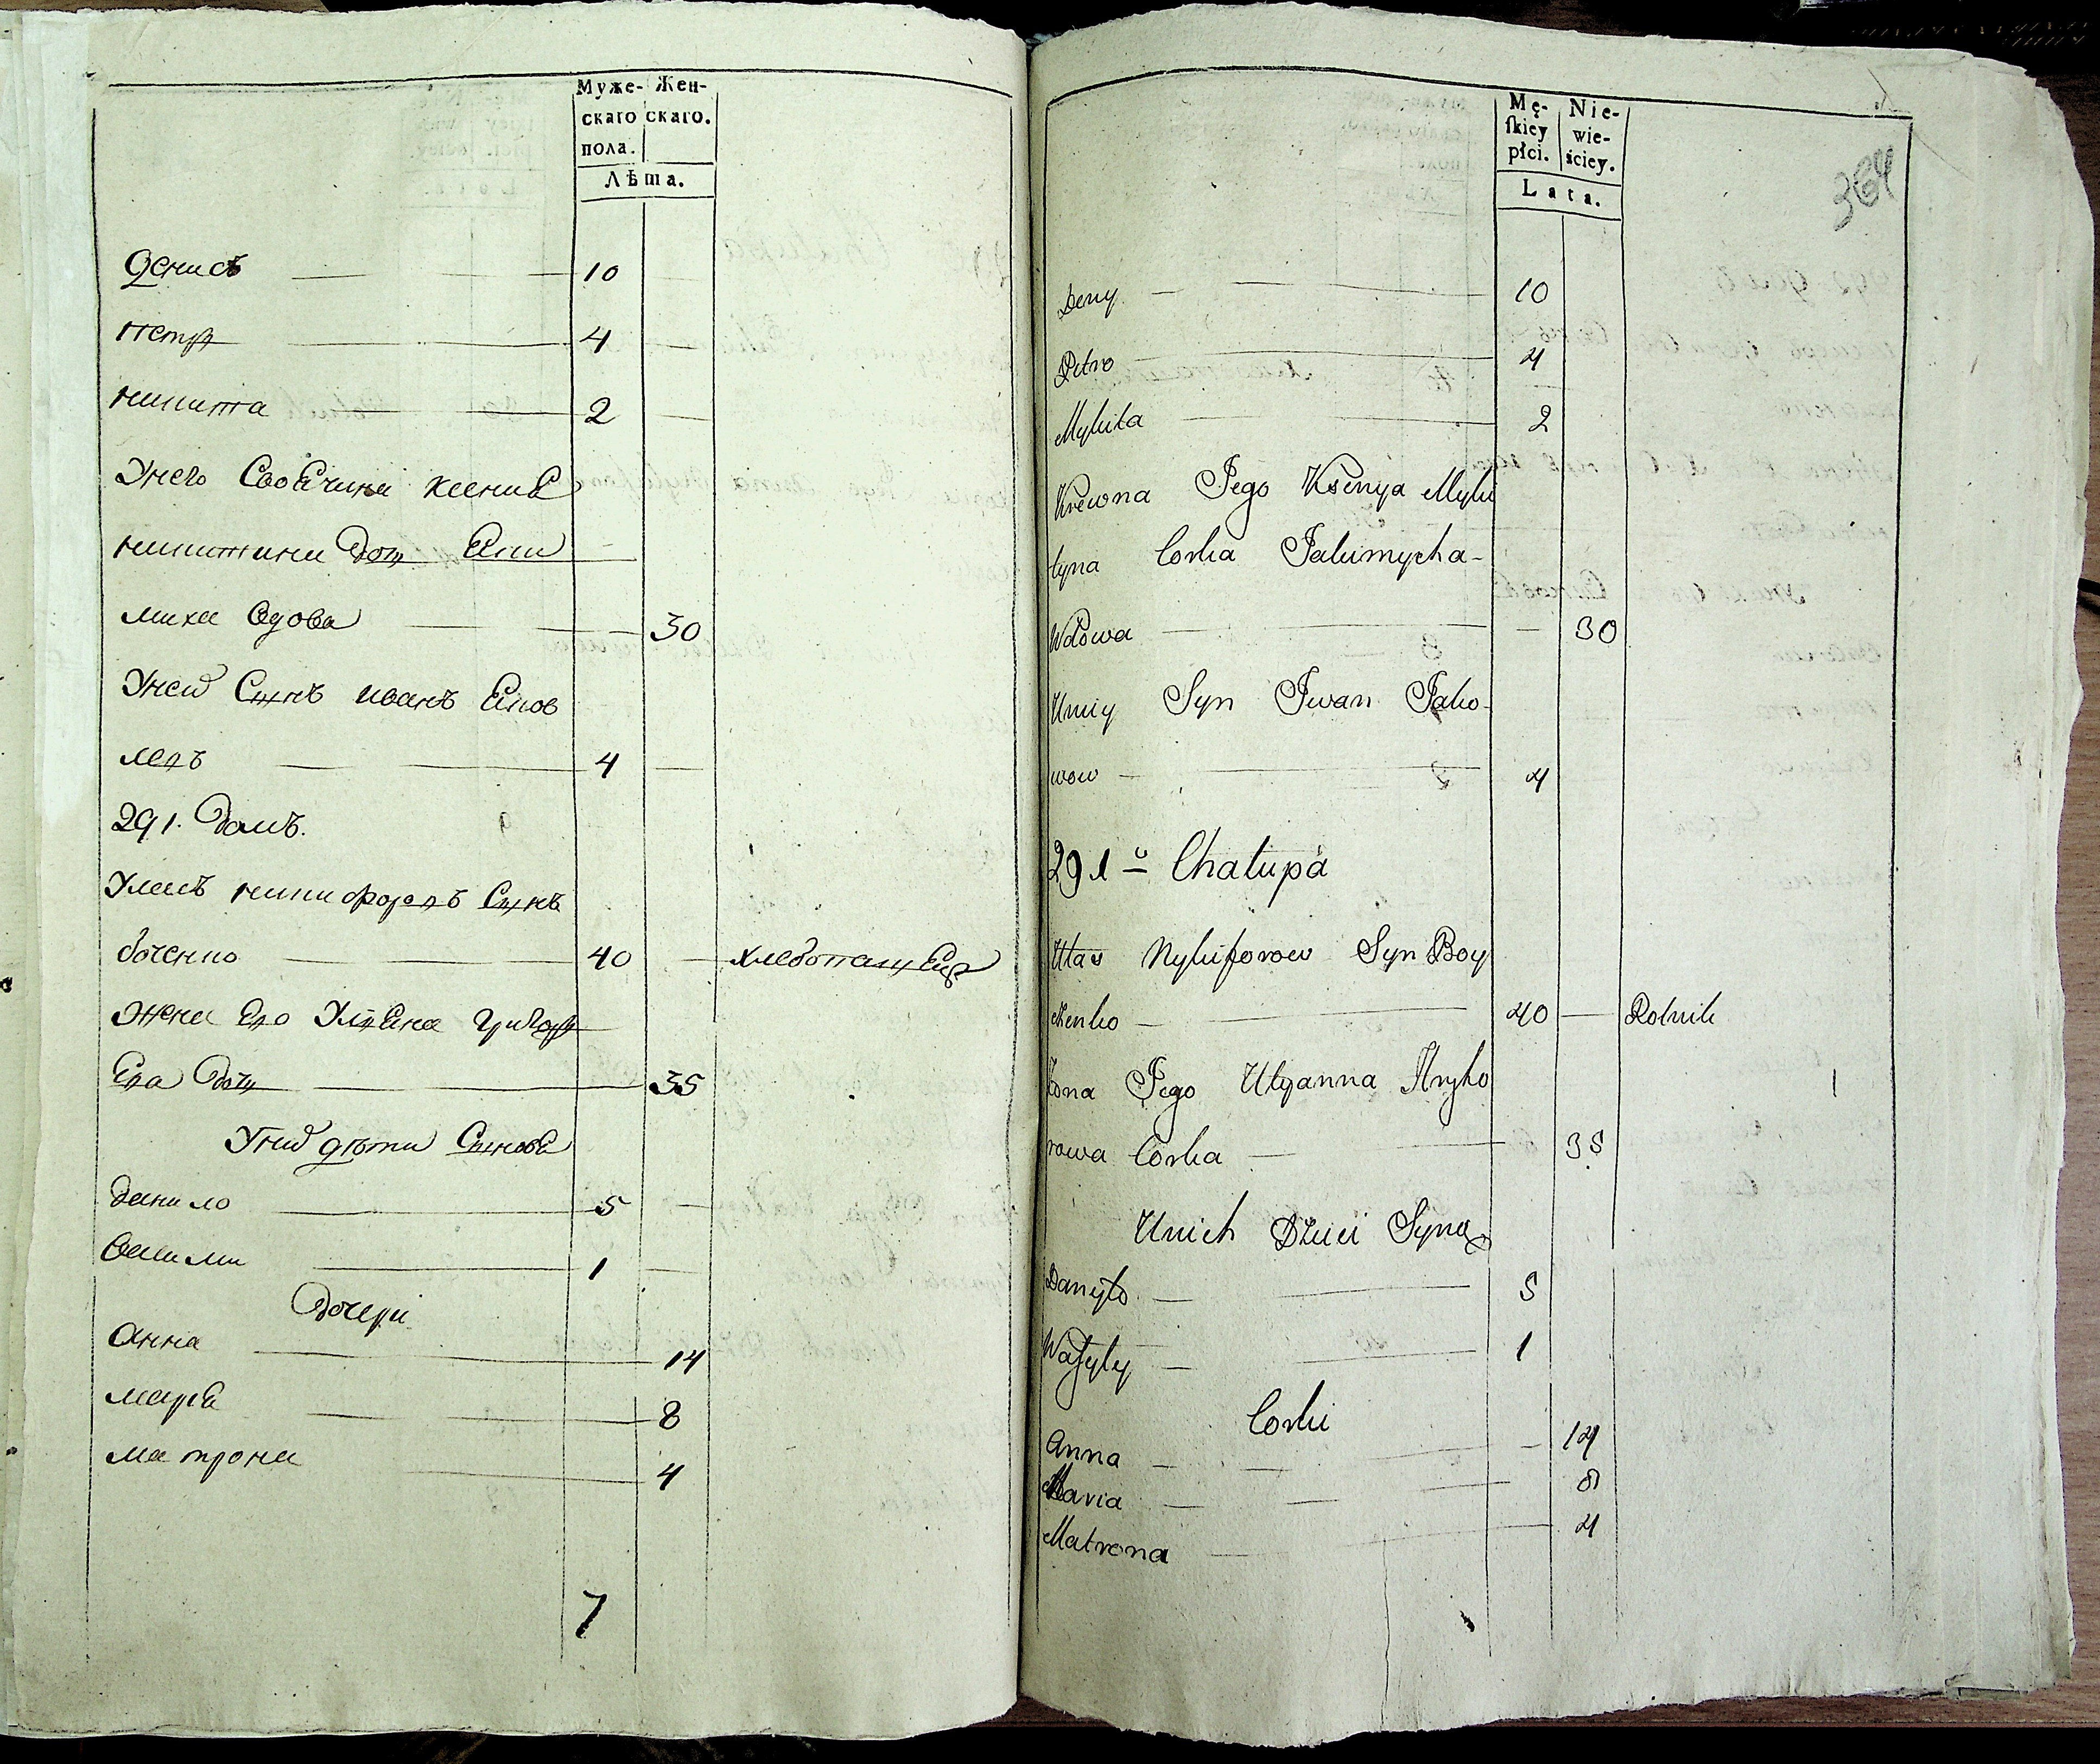 Муже- Жен-
скаго скаго.
пола.
Лѣта.
Денисъ 10
Петръ 4
Никита 2
Унего Своячина Ксения
Никитина Доч Яки
миха Вдова 30
Унея Сынъ Иванъ Яков
левъ 4
291. Домъ.
Уласъ Никифоровъ Сынъ
боченко 40 хлебопашец
Жена Его Ульяна Григор
Ева Доч 35
Уних дѣти Синовя
Данило 5
Василий 1
Дочери
Анна 14
Маря 8
Матрона 4
7
Mę- Nie-
skiey wie-
płci. ściey.
Lata.
364
Deny 10
Petro 4
Mykita 2
Krewna Jego Ksenya Myki
tyna Corka Jakimycha
Wdowa 30
Uniey Syn Iwan Jako
wow 4
291 Chałupa
Ułas Nykiforow Syn Boy
czenko 40 Rolnik
Żona Jego Ulyanna Hryho
rowa Corka 35
Unich Dzieci Syny
Danyło 5
Wasyly 1
Corki
Anna 14
Maria 8
Matrona 4